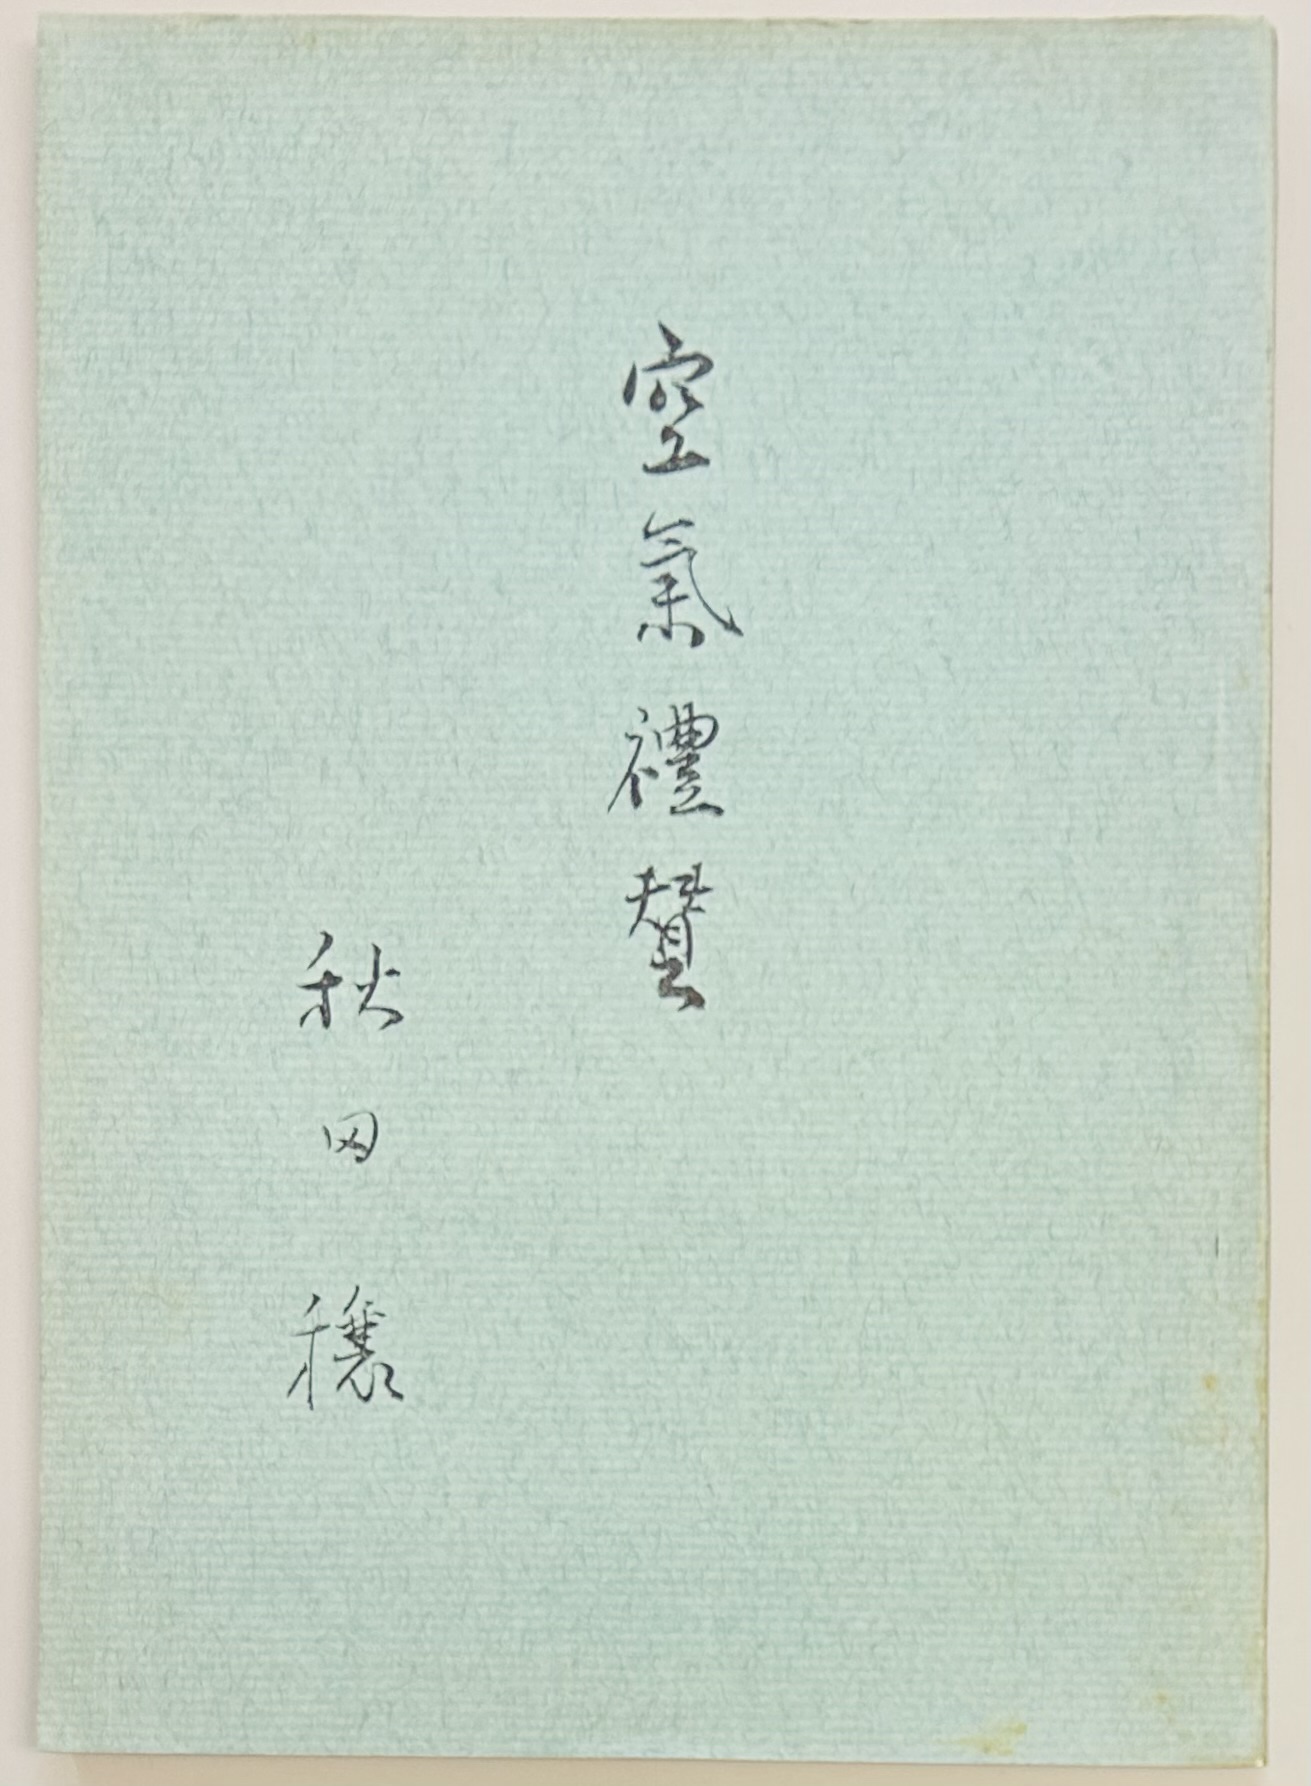 空氣禮贊
秋田穰